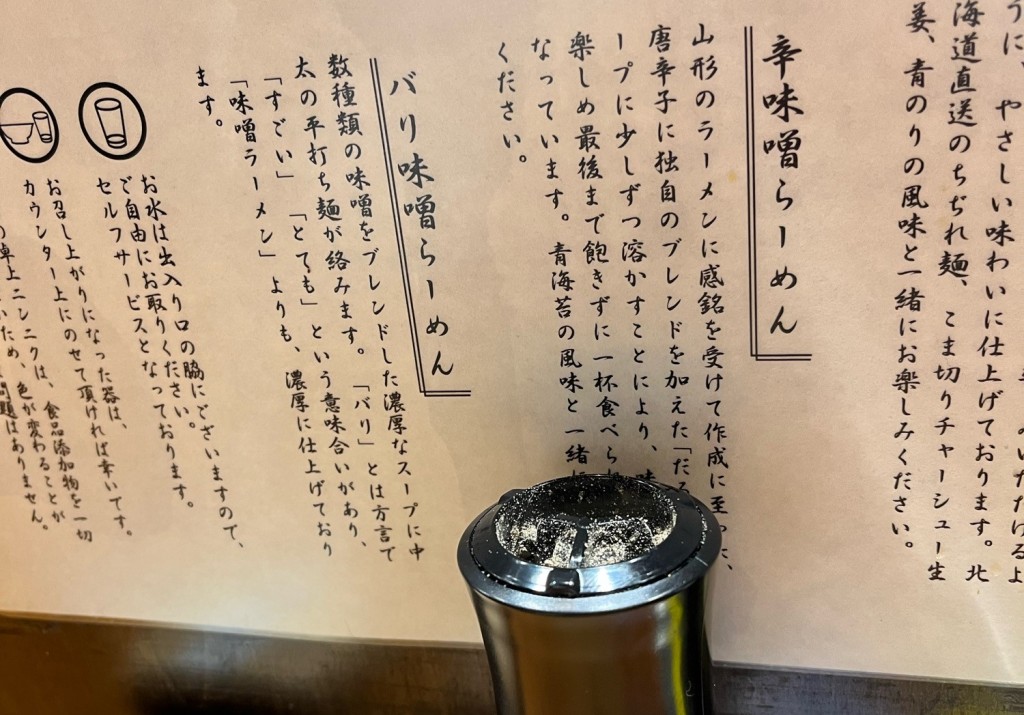 うに、やさしい味わいに仕上げております。北
海道直送のちぢれ麺、こま切りチャーシュー生
姜、青のりの風味と一緒にお楽しみください。
辛味噌らーめん
山形のラーメンに感銘を受けて作成に至った、
唐辛子に独自のブレンドを加えた「だ
ープに少しずつ溶かすことにより、味
楽しめ最後まで飽きずに一杯食べら
なっています。青海苔の風味と一緒に
ください。
バリ味噌らーめん
数種類の味噌をブレンドした濃厚なスープに中
太の平打ち麺が絡みます。「バリ」とは方言で
「すごい」「とても」という意味合いがあり、
「味噌ラーメン」よりも、濃厚に仕上げており
ます。
お水は出入り口の脇にございますので、
ご自由にお取りください。
セルフサービスとなっております。
お召し上がりになった器は、
カウンター上にのせて頂ければ幸いです。
卓上ニンニクは、食品添加物を一切
いため、色が変わることが
問題はありません。